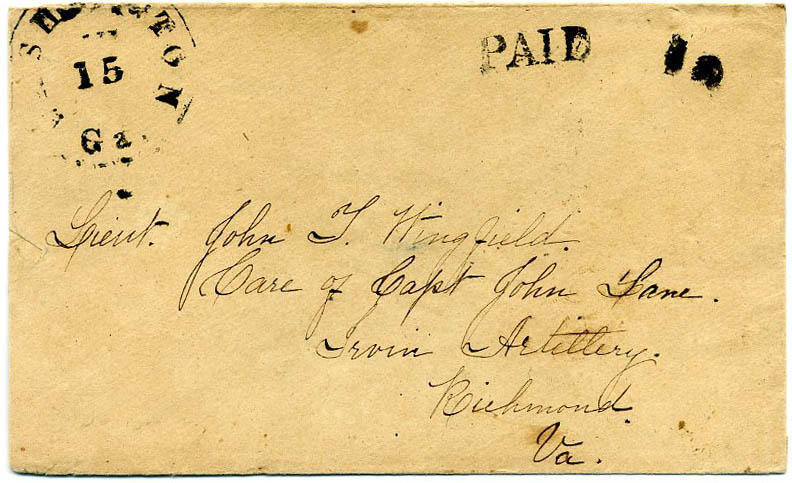 SHINGTON
15
Ga
PAID 10
Lieut. John T. Wingfield.
Care of Capt John Lane.
Irvin Artillery.
Richmond.
Va.